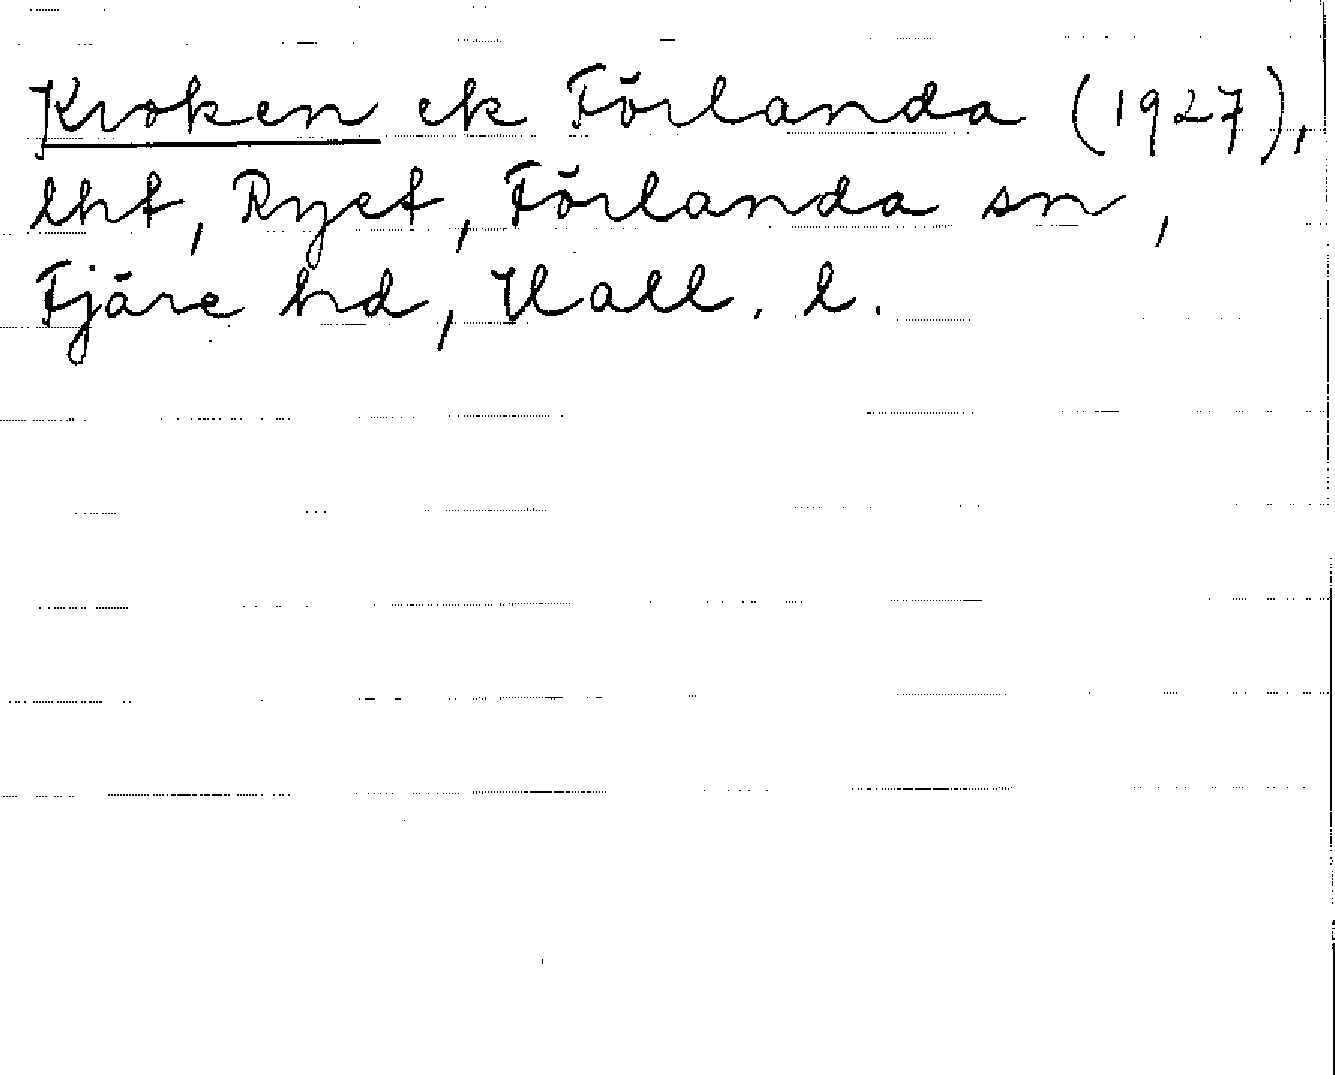 Kroken ek Förlanda (1927),
lht, Ryet, Förlanda sn,
Fjäre hd, Hall. l.